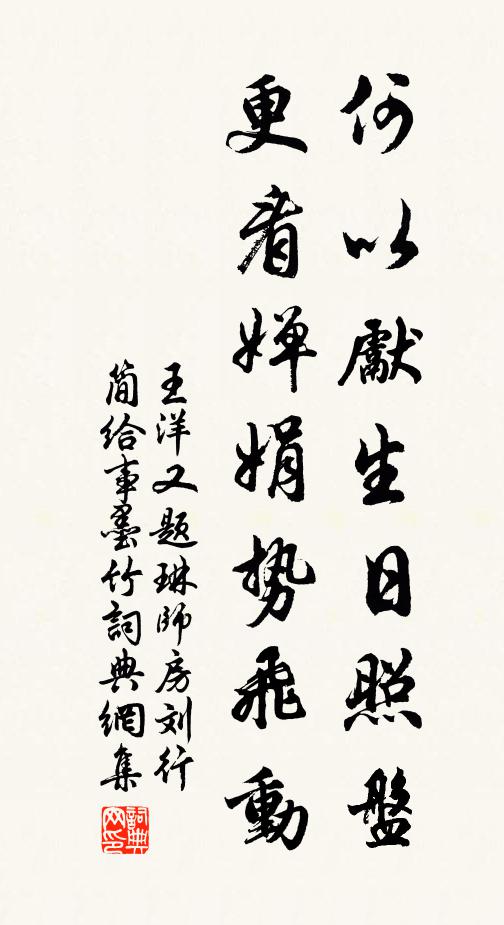 何以獻生日照盤
更看嬋娟势飛動
王洋又题琳師房刘行
简給事墨竹詞典網集
詞典网印